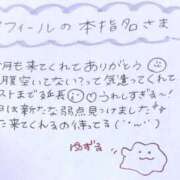 フィールの本指名さま
月も来てくれてありがとう
腹空いてない?って気遣ってくれて
ストまで延長♡うれしすぎる〜!
日は新たな弱点見つけましたな
た来てくれるの待ってる(˙ᵕ˙)
ゆずる